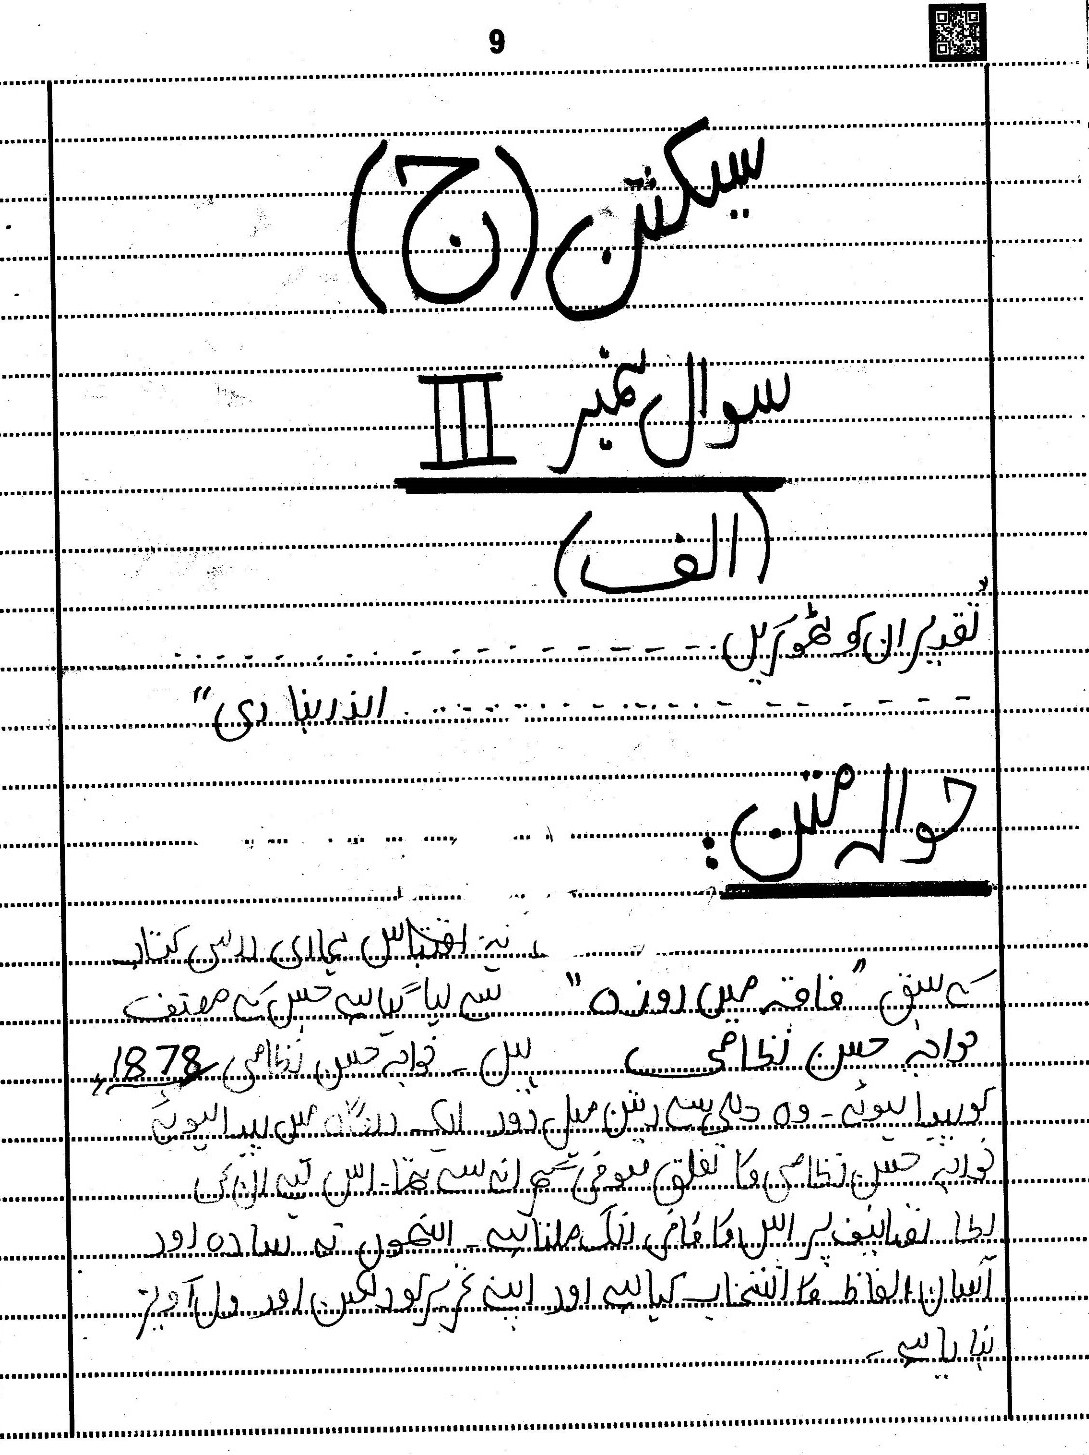 9
سیکشن (ج)
سوال نمبر III
(الف)
"تقدیر ان کو ٹھوکریں - - - - - - - - - - - - - -
- - - - - - - - - - - - - - - - اندر بنا دی"
حوالہ متن:
یہ اقتباس ہماری درسی کتاب
کے سبق "فاقہ میں روزہ" سے لیا گیا ہے جس کے مصنف
خواجہ حسن نظامی ہیں ۔ خواجہ حسن نظامی 1878ء
کو پیدا ہوئے۔ وہ دہلی سے دس میل دور ایک درگاہ میں پیدا ہوئے
خواجہ حسن نظامی کا تعلق صوفی گھرانے سے تھا۔ اس لیے ان کی
تصانیف پر اس کا خاص رنگ ملتا ہے۔ انھوں نے سادہ اور
آسان الفاظ کا انتخاب کیا ہے اور اپنے تحریر کو دلکش اور دل آویز
بنایا ہے ۔